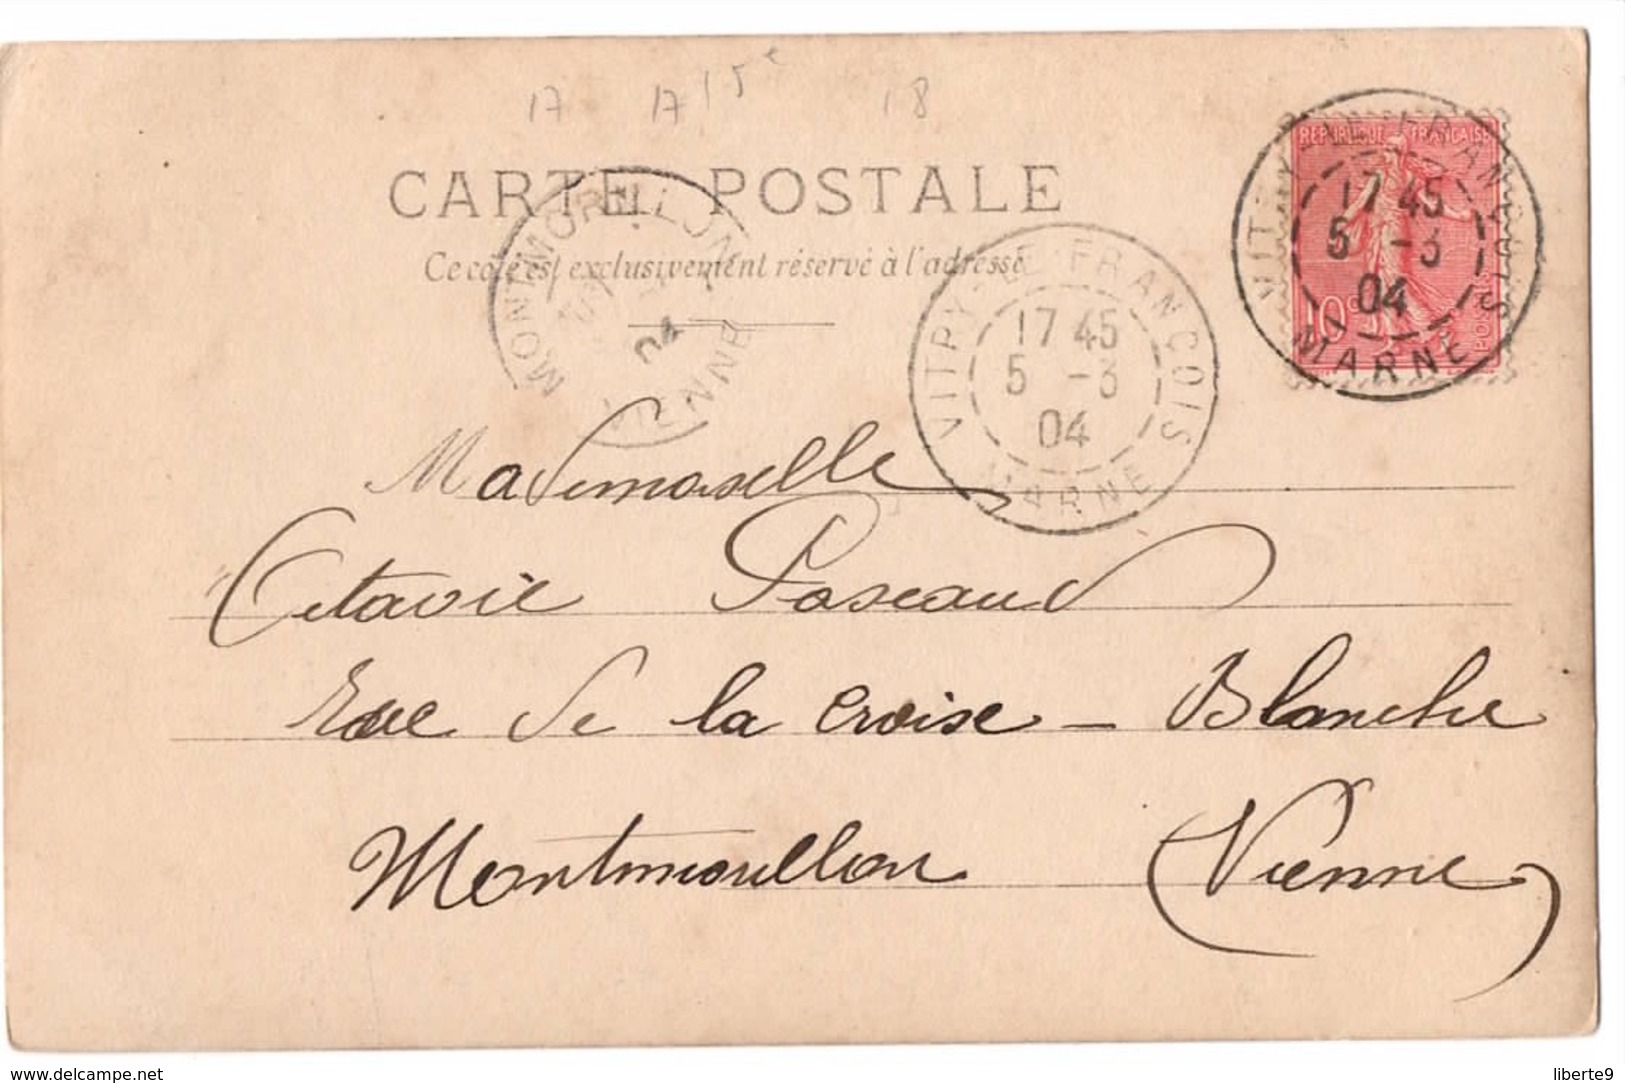 17 17 15e 18
CARTE POSTALE
Ce côté est exclusivement réservé à l'adresse
RÉPUBLIQUE FRANÇAISE
10c
POSTES
VITRY-LE-FRANCOIS
17 45
5 -3
04
MARNE
VITRY-LE-FRANCOIS
17 45
5 -3
04
MARNE
MONTMORILLON
04
VIENNE
Mademoiselle
Octavie Paseaud
Rue de la Croise - Blanche
Montmorillon (Vienne)
www.delcampe.net
liberte9